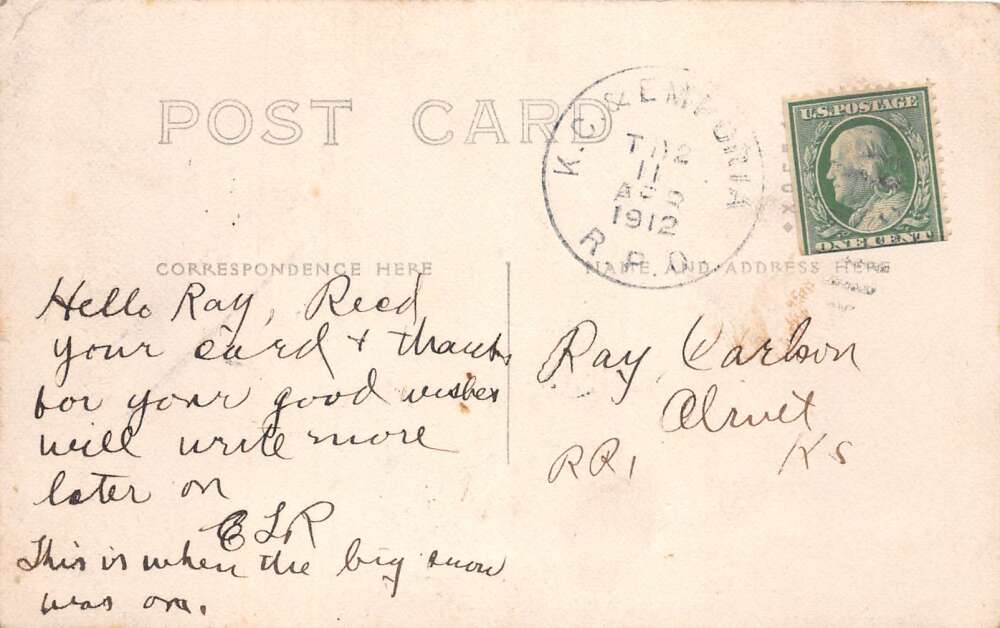 POST CARD
K.C. & EMPORIA
TR 2
11
APR
1912
R.P.O.
U.S. POSTAGE
ONE CENT
CORRESPONDENCE HERE
NAME AND ADDRESS HERE
Hello Ray, Recd
your card & thanks
for your good wishes
will write more
later on
ELR
This is when the big snow
was on.
Ray Carlson
RR1 KS